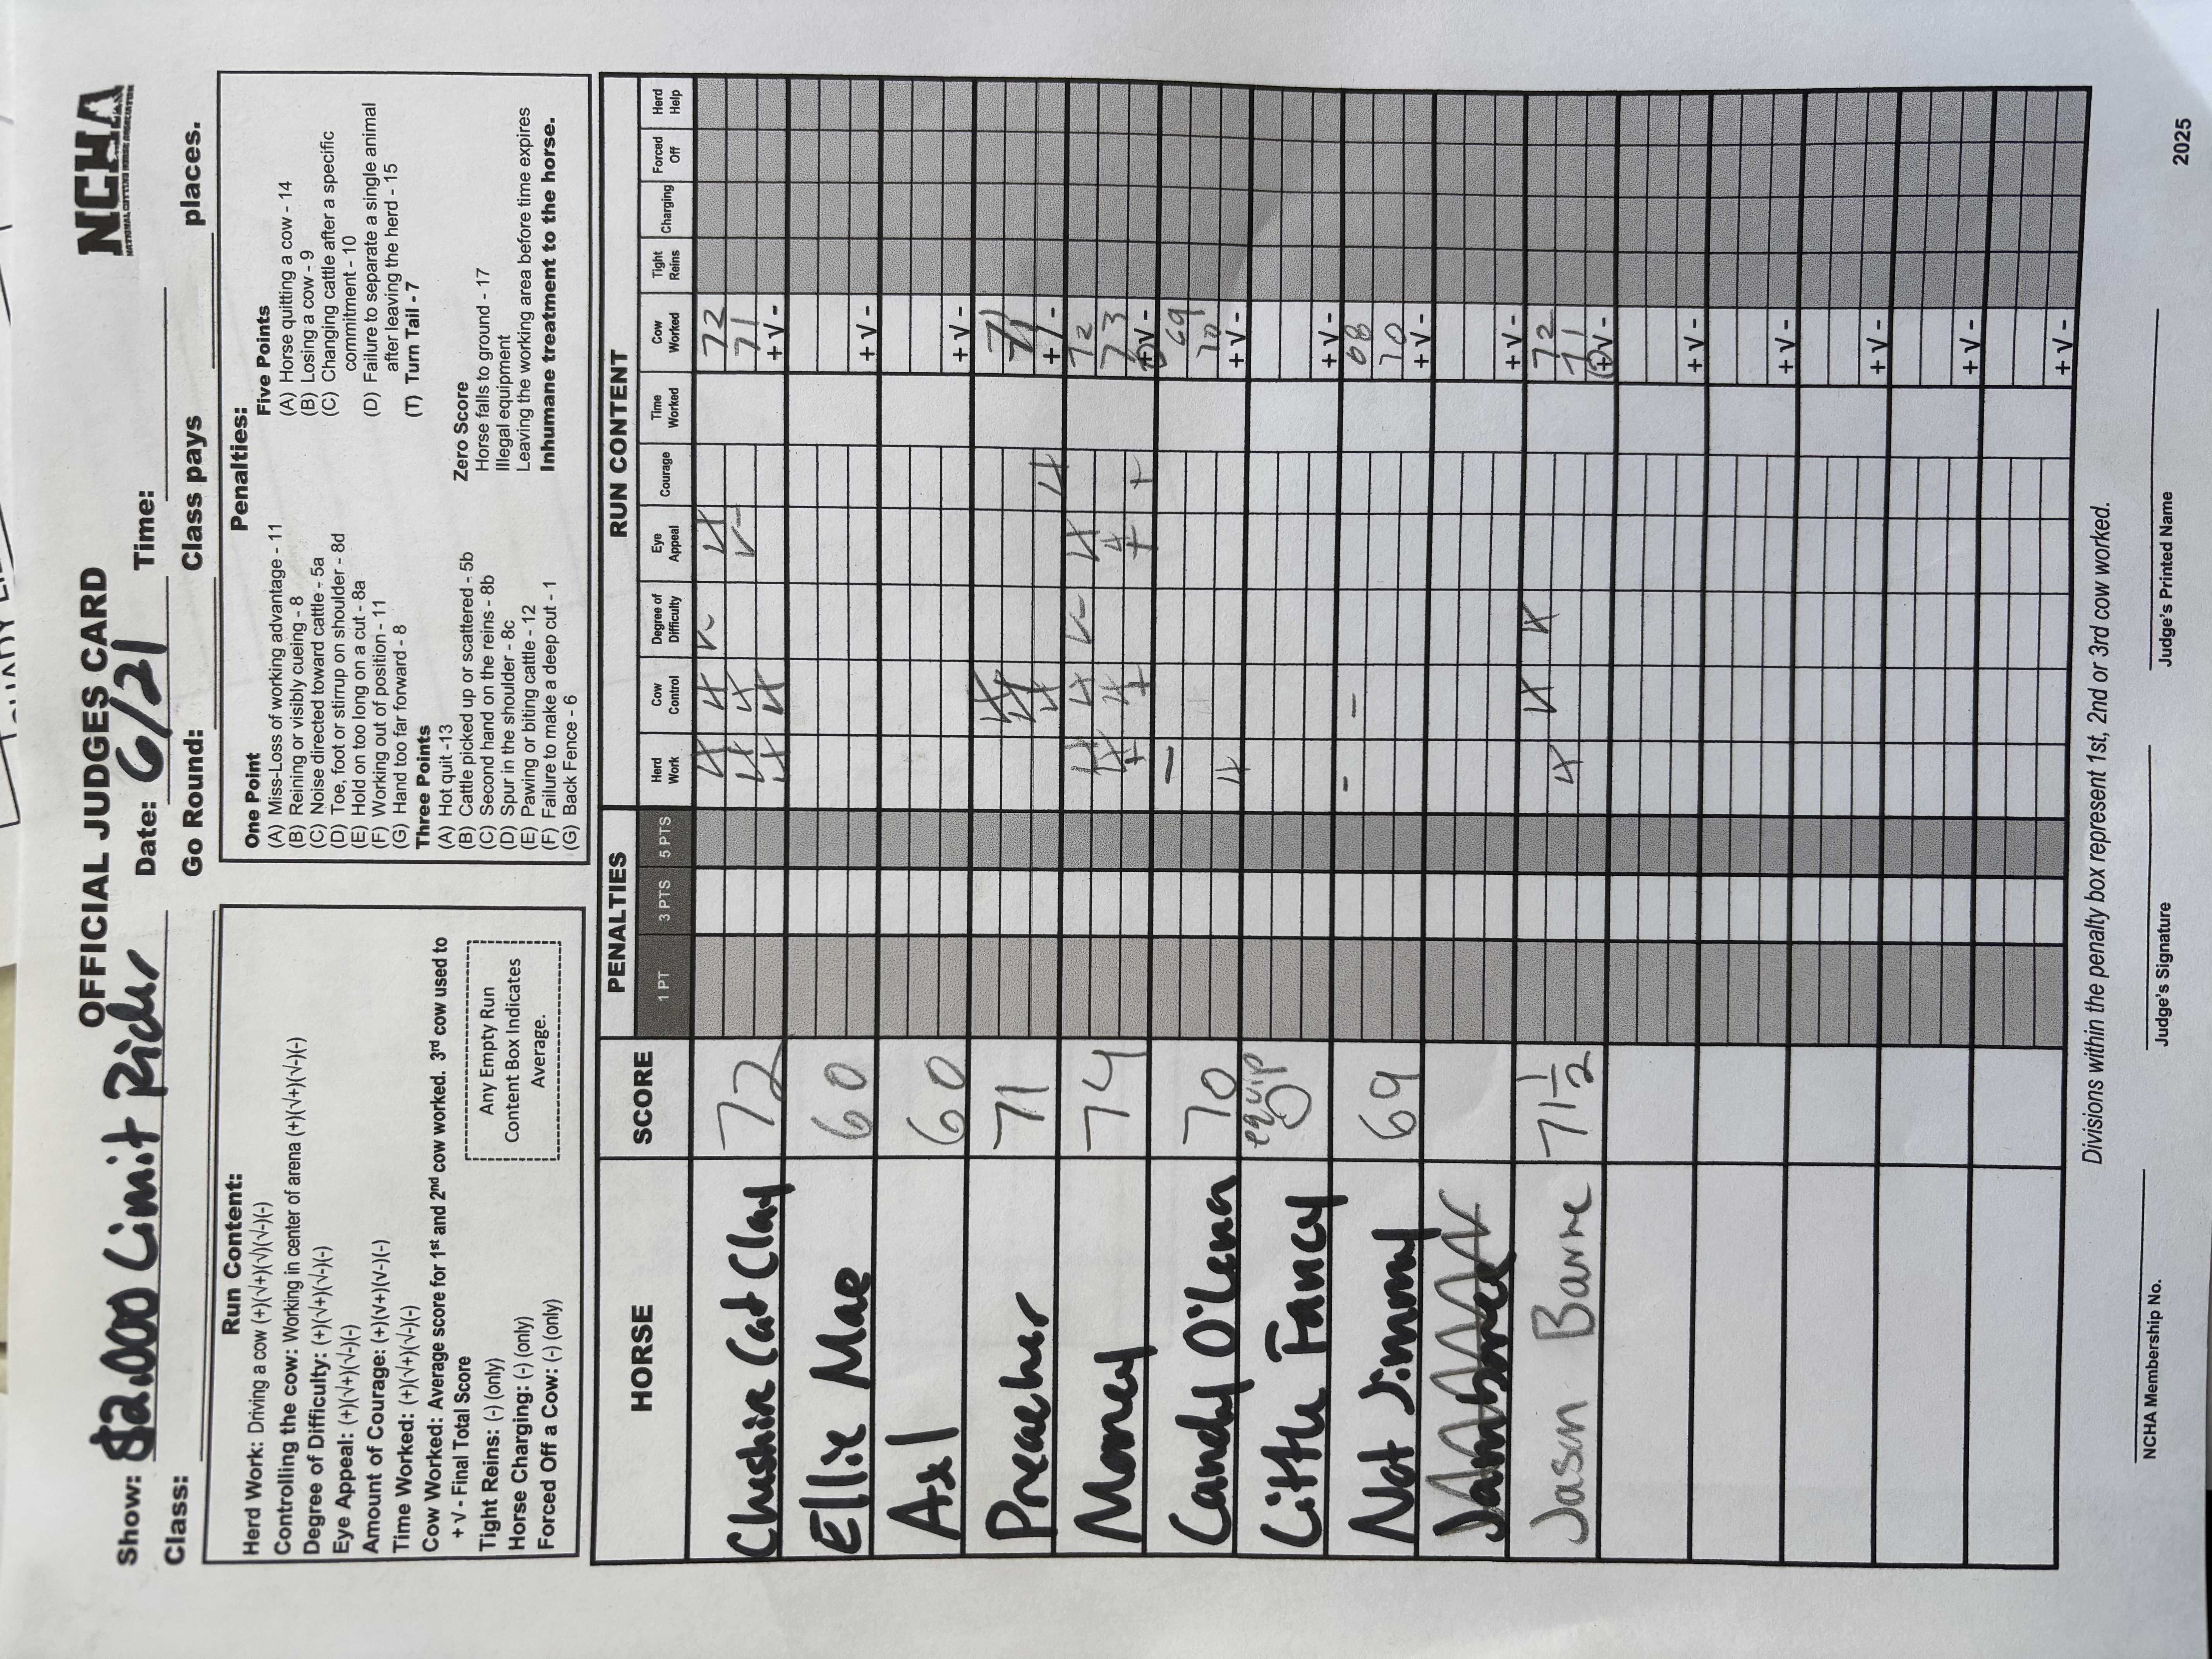 OFFICIAL JUDGES CARD
NCHA
NATIONAL CUTTING HORSE ASSOCIATION
Show: $2,000 Limit Rider Date: 6/21 Time:
Class: Go Round: Class pays places.
Run Content:
Herd Work: Driving a cow (+)(√+)(√)(√-)(-)
Controlling the cow: Working in center of arena (+)(√+)(√-)(-)
Degree of Difficulty: (+)(√+)(√-)(-)
Eye Appeal: (+)(√+)(√-)(-)
Amount of Courage: (+)(√+)(√-)(-)
Time Worked: (+)(√+)(√-)(-)
Cow Worked: Average score for 1st and 2nd cow worked. 3rd cow used to
+ √ - Final Total Score
Tight Reins: (-) (only)
Horse Charging: (-) (only)
Forced Off a Cow: (-) (only)
Any Empty Run
Content Box Indicates
Average.
Penalties:
One Point
(A) Miss-Loss of working advantage - 11
(B) Reining or visibly cueing - 8
(C) Noise directed toward cattle - 5a
(D) Toe, foot or stirrup on shoulder - 8d
(E) Hold on too long on a cut - 8a
(F) Working out of position - 11
(G) Hand too far forward - 8
Three Points
(A) Hot quit -13
(B) Cattle picked up or scattered - 5b
(C) Second hand on the reins - 8b
(D) Spur in the shoulder - 8c
(E) Pawing or biting cattle - 12
(F) Failure to make a deep cut - 1
(G) Back Fence - 6
Five Points
(A) Horse quitting a cow - 14
(B) Losing a cow - 9
(C) Changing cattle after a specific
commitment - 10
(D) Failure to separate a single animal
after leaving the herd - 15
(T) Turn Tail - 7
Zero Score
Horse falls to ground - 17
Illegal equipment
Leaving the working area before time expires
Inhumane treatment to the horse.
HORSE SCORE PENALTIES RUN CONTENT
1 PT 3 PTS 5 PTS Herd Work Cow Control Degree of Difficulty Eye Appeal Courage Time Worked Cow Worked Tight Reins Charging Forced Off Herd Help
√+ √+ √- √+ 72
Cheshire Cat Clay 72 √+ √+ √- 71
√+ √+ + √ -
Ellie Mae 60
+ √ -
Axl 60
+ √ -
√+ 71
Preacher 71 √+
√+ √+ + √ -
√+ √+ √- √+ 72
Money 74 √+ √+ √+ 73
+ + + + + √ -
- 69
Candy O'Lena 70 70
√+ + √ -
Little Fancy equip 0
+ √ -
- - 68
Not Jimmy 69 70
+ √ -
+ √ -
√+ √+ 72
Jason Barne 71 1/2 √+ 71
+ √ -
+ √ -
+ √ -
+ √ -
+ √ -
+ √ -
Divisions within the penalty box represent 1st, 2nd or 3rd cow worked.
NCHA Membership No. Judge's Signature Judge's Printed Name
2025